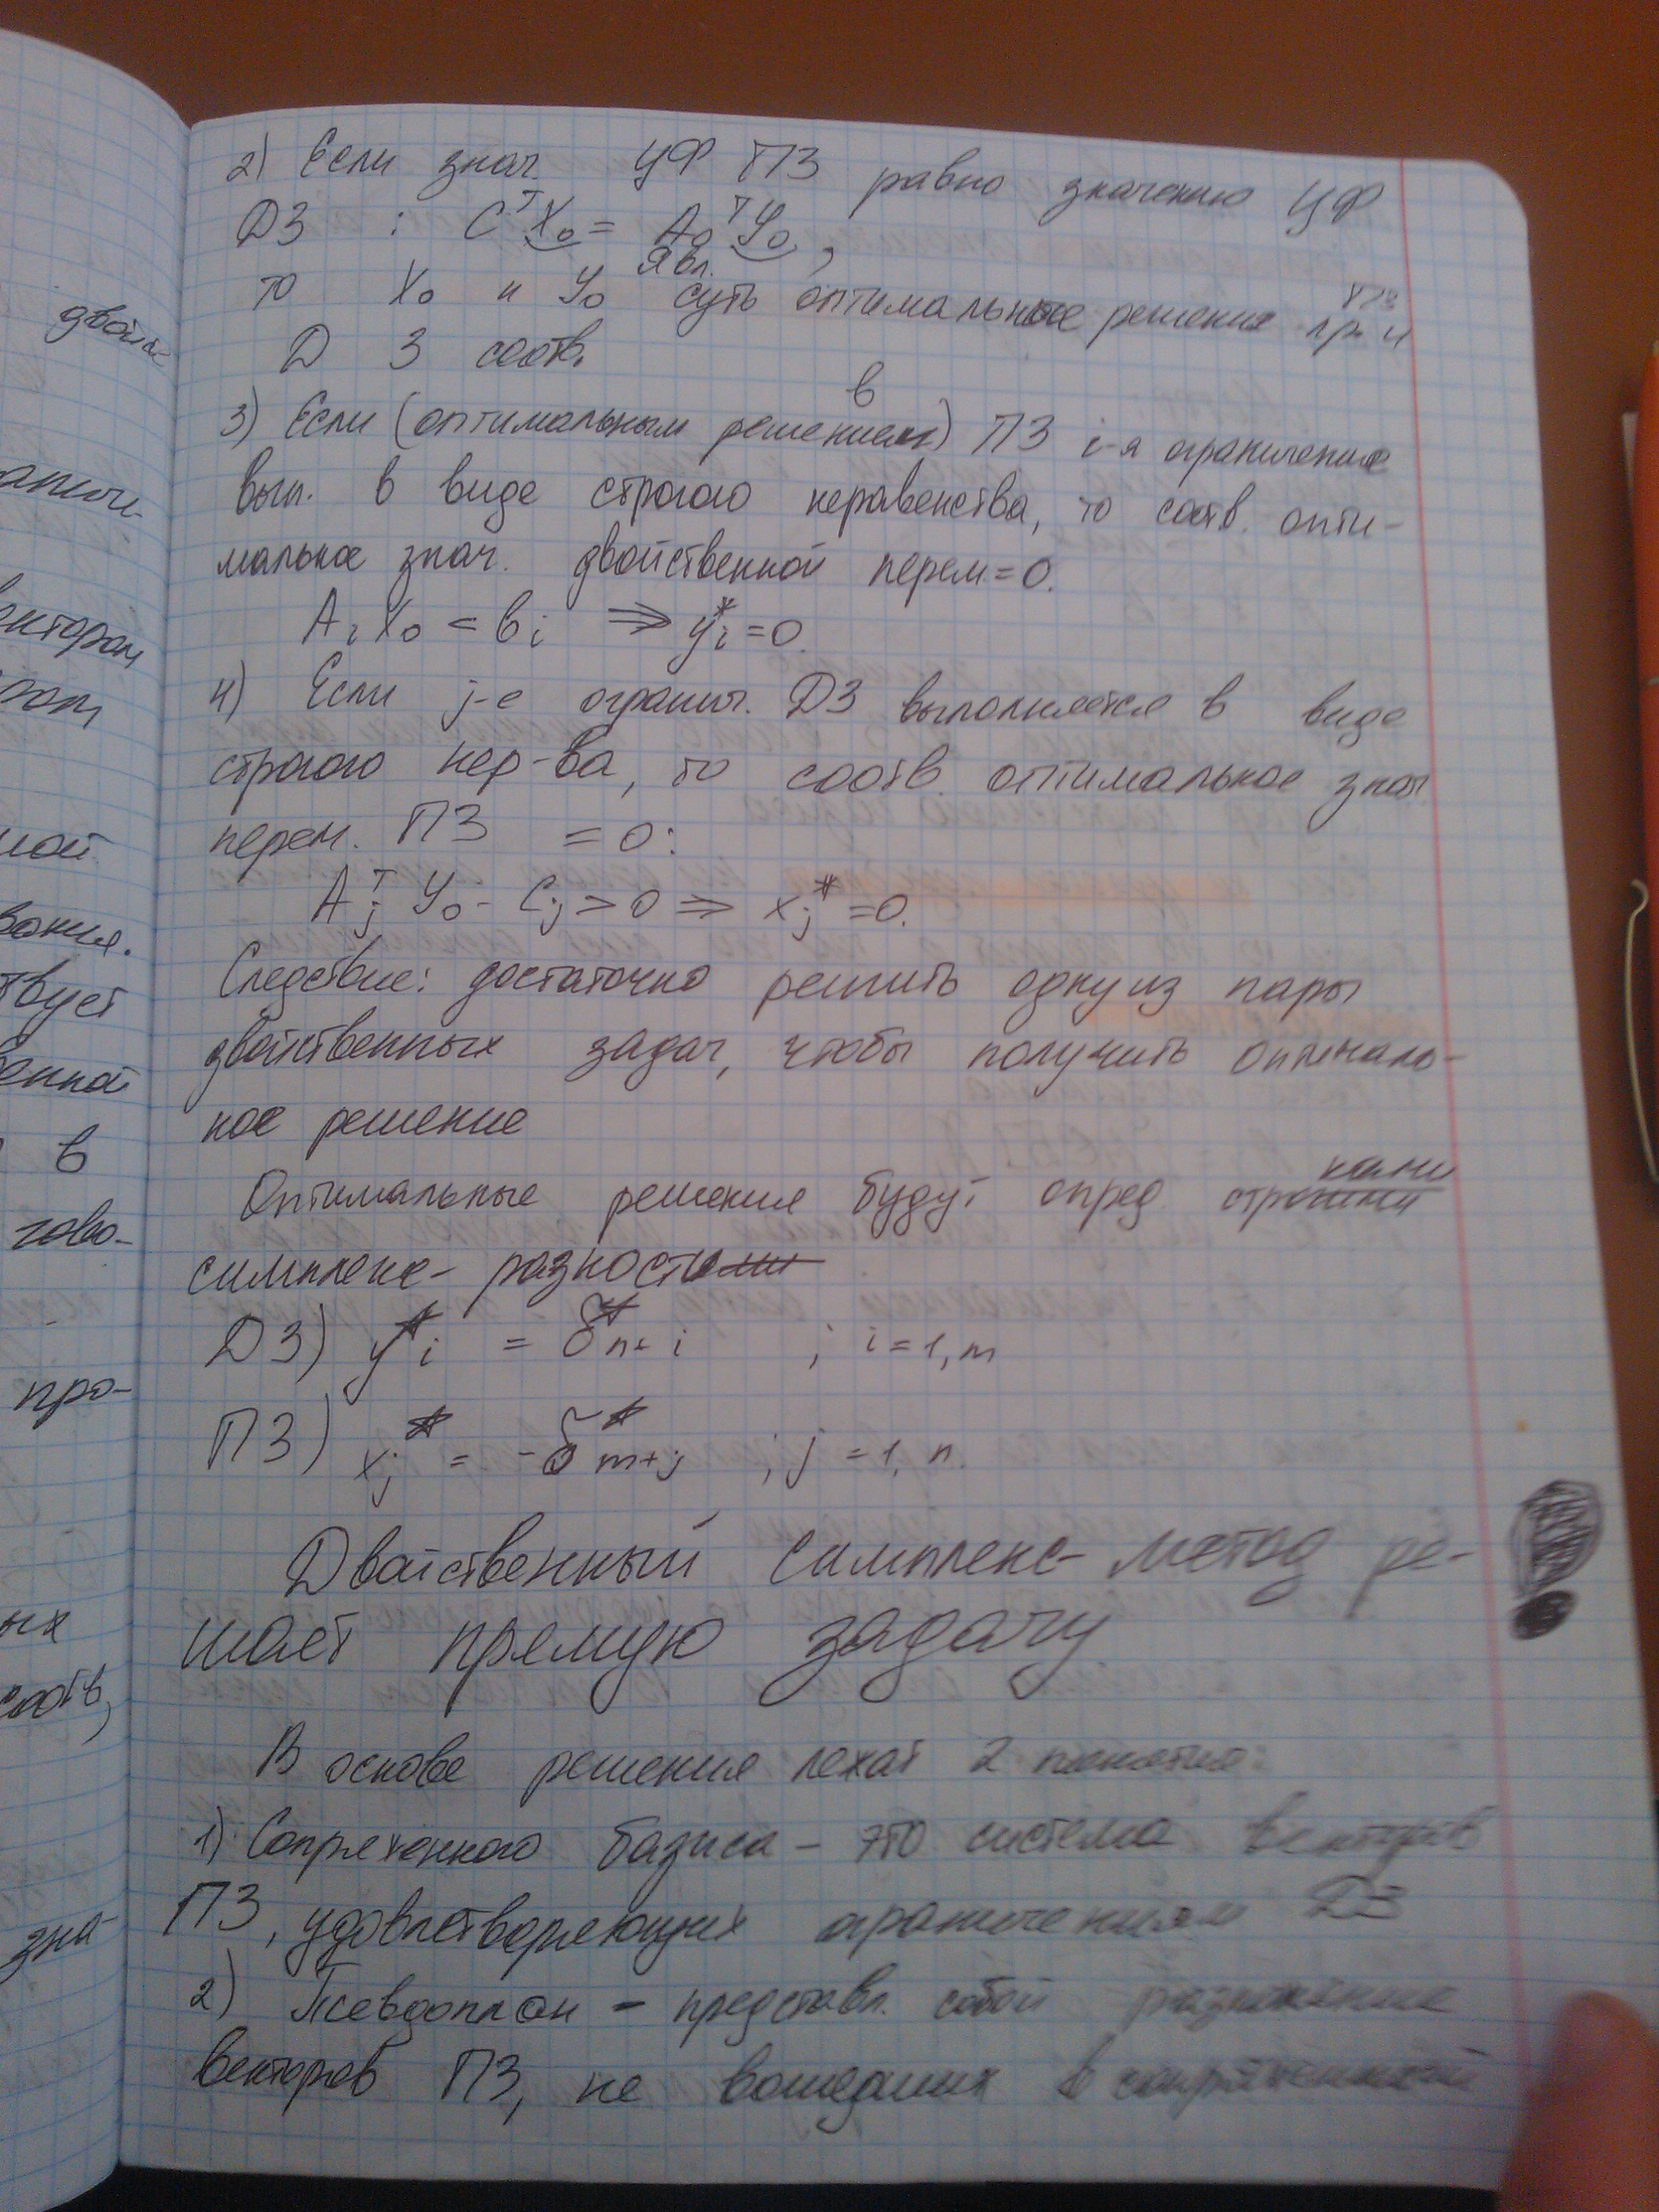 2) Если знач. ЦФ ПЗ равно значению ЦФ
ДЗ : C^T X₀ = A₀^T Y₀ ,
явл.
то X₀ и Y₀ суть оптимальное решение пр. и
ПЗ
Д З соотв.
в
3) Если (оптимальным решением) ПЗ i-я ограничение
вып. в виде строгого неравенства, то соотв. опти-
мальное знач. двойственной перем = 0.
AᵢX₀ = bᵢ ⇒ yᵢ* = 0.
4) Если j-е огранич. ДЗ выполняется в виде
строгого нер-ва, то соотв. оптимальное знач
перем. ПЗ = 0:
Aⱼ^T Y₀ - Cⱼ > 0 ⇒ xⱼ* = 0.
Следствие: достаточно решить одну из пары
двойственных задач, чтобы получить оптималь-
ное решение
ками
Оптимальные решения будут опред. строками
симплекс- разности
ДЗ) y*ᵢ = δ*ₙ₊ᵢ ; i = 1, m
ПЗ) xⱼ* = -δ̃*ₘ₊ⱼ ; j = 1, n.
Двойственный симплекс- метод ре-
шает прямую задачу
В основе решения лежат 2 понятия:
1) Сопряженного базиса - это система векторов
ПЗ, удовлетворяющих ограничениям ДЗ
2) Псевдоплан - представл. собой разложение
векторов ПЗ, не вошедших в сопряженный
двойств
ничи-
вектором
ной
вания.
твует
енной
в
гово-
про-
ных
соотв,
зна-